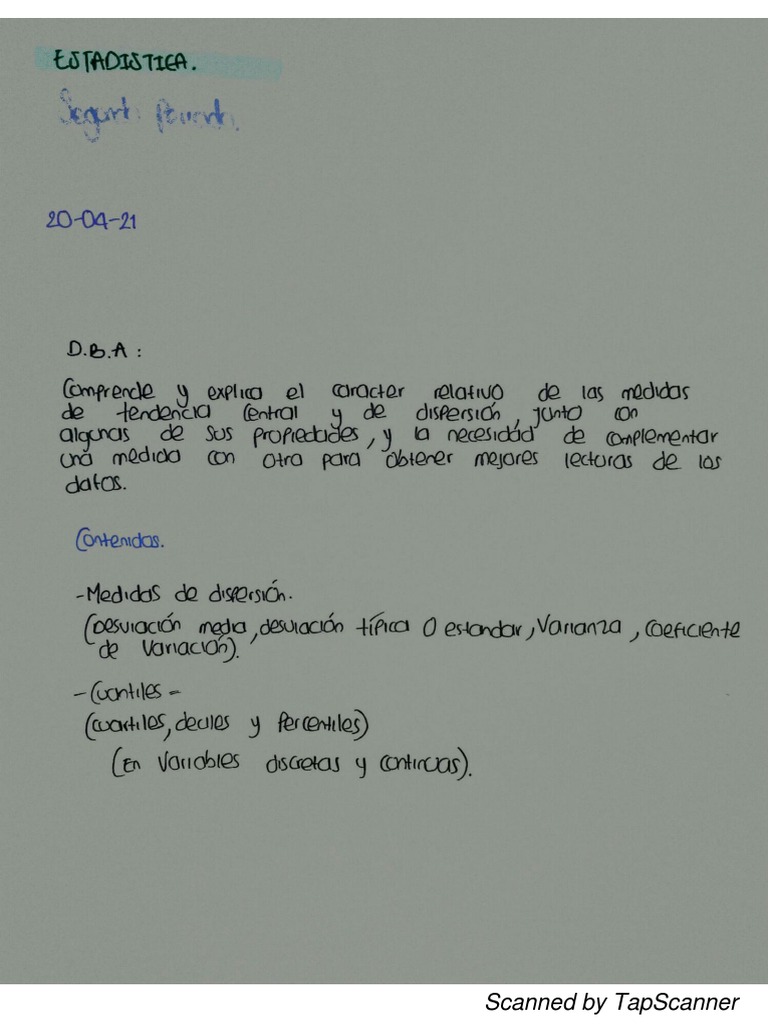 ESTADISTICA.
Segundo Periodo.
20-04-21
D.B.A:
Comprende y explica el caracter relativo de las medidas
de tendencia Central y de dispersión, junto con
algunas de sus propiedades, y la necesidad de complementar
una medida con otra para obtener mejores lecturas de los
datos.
Contenidos.
-Medidas de dispersión.
(Desviación media, desviación típica O estandar, Varianza, Coeficiente
de Variación).
-Cuantiles-
(cuartiles, deciles y Percentiles)
(En Variables discretas y continuas).
Scanned by TapScanner